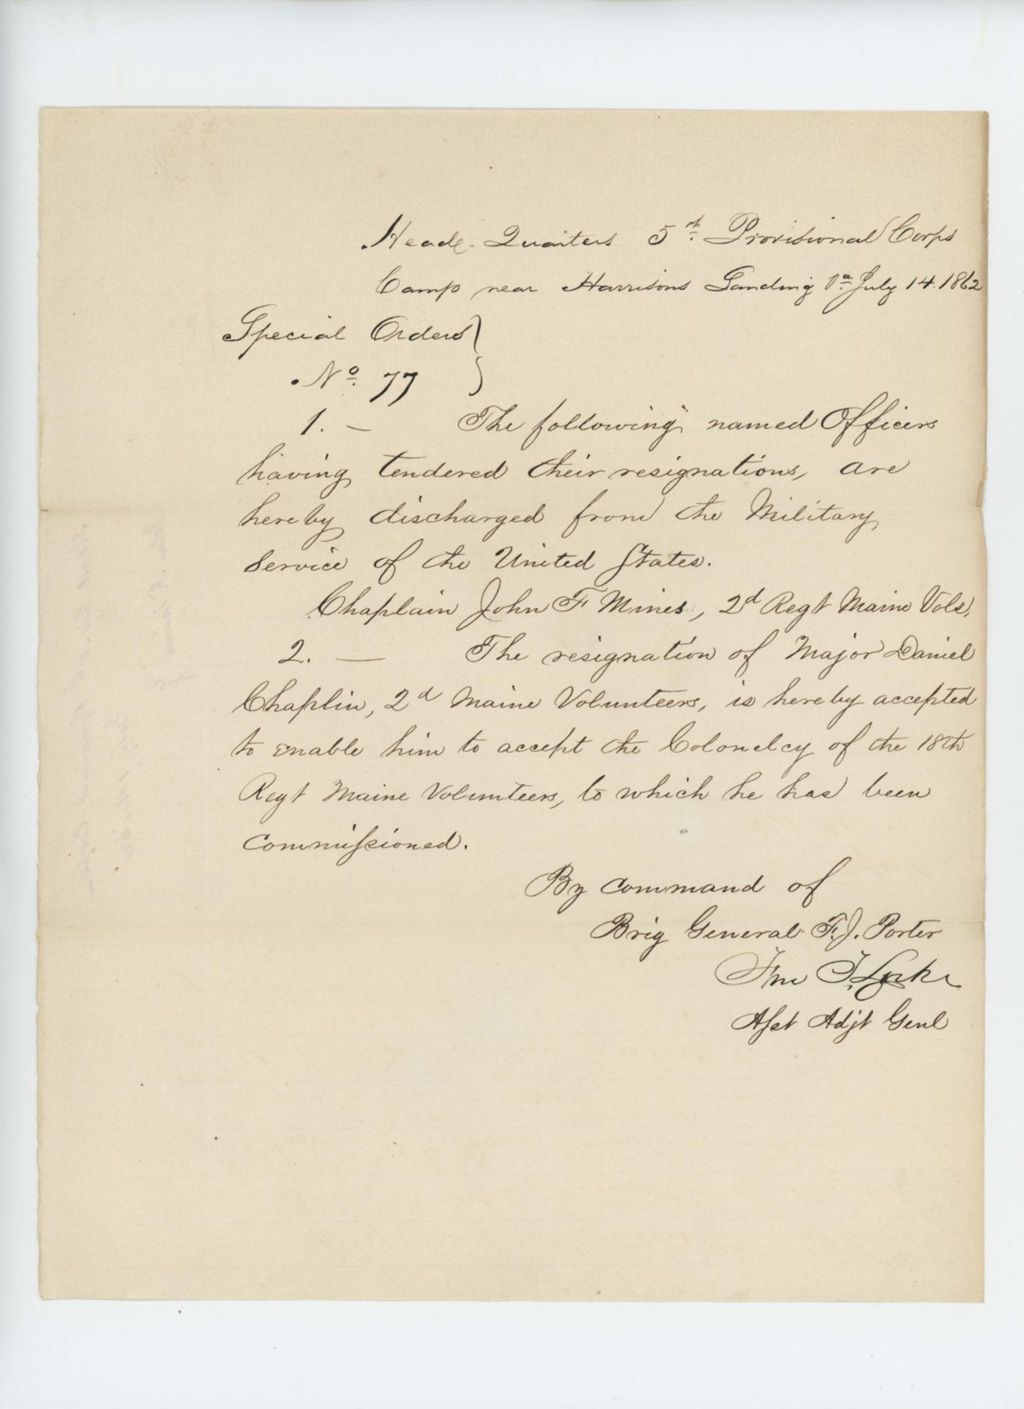 Head-Quarters 5th Provisional Corps
Camp near Harrisons Landing Va July 14. 1862
Special Orders }
No 77
1. — The following named Officers
having tendered their resignations, are
hereby discharged from the Military
Service of the United States.
Chaplain John F Mines, 2d Regt Maine Vols,
2. — The resignation of Major Daniel
Chaplin, 2d Maine Volunteers, is hereby accepted
to enable him to accept the Colonelcy of the 18th
Regt Maine Volunteers, to which he has been
Commissioned.
By command of
Brig General F. J. Porter
T. Locke
Asst Adjt Genl